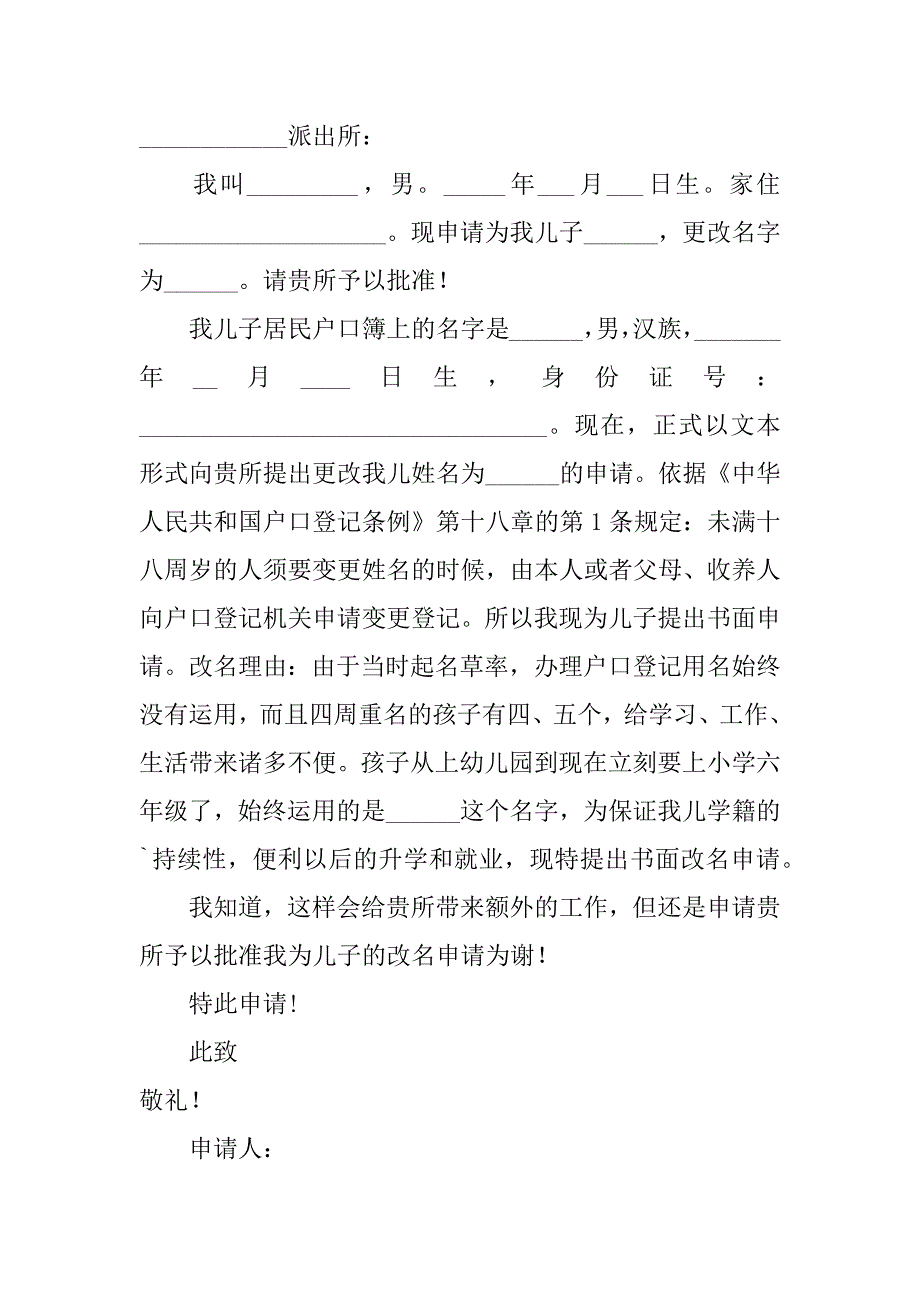 ____________派出所：
我叫_________，男。_____年___月___日生。家住
____________________。现申请为我儿子______，更改名字
为______。请贵所予以批准！
我儿子居民户口簿上的名字是______，男，汉族，_______
年__月____日生，身份证号：
_________________________________。现在，正式以文本
形式向贵所提出更改我儿姓名为______的申请。依据《中华
人民共和国户口登记条例》第十八章的第1条规定：未满十
八周岁的人须要变更姓名的时候，由本人或者父母、收养人
向户口登记机关申请变更登记。所以我现为儿子提出书面申
请。改名理由：由于当时起名草率，办理户口登记用名始终
没有运用，而且四周重名的孩子有四、五个，给学习、工作、
生活带来诸多不便。孩子从上幼儿园到现在立刻要上小学六
年级了，始终运用的是______这个名字，为保证我儿学籍的
`持续性，便利以后的升学和就业，现特提出书面改名申请。
我知道，这样会给贵所带来额外的工作，但还是申请贵
所予以批准我为儿子的改名申请为谢！
特此申请!
此致
敬礼！
申请人：